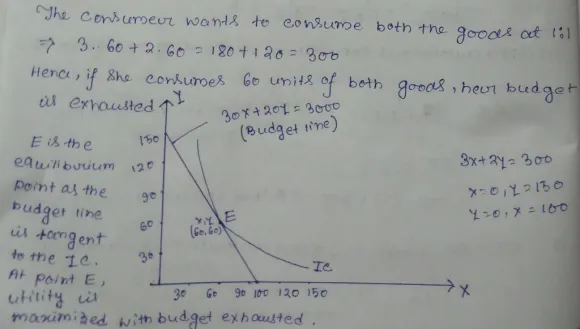 The consumer wants to consume both the goods at 1:1
⇒ 3.60+2.60 = 180+120 = 300
Hence, if she consumes 60 units of both goods, her budget
is exhausted.
Y
30x+20y = 3000
(Budget line)
E is the
equilibrium
point as the
budget line
is tangent
to the IC.
At point E,
utility is
maximized with budget exhausted.
150
120
90
60
30
x,y
(60,60)
E
IC
30 60 90 100 120 150
X
3x+2y = 300
x=0, y=150
y=0, x=100